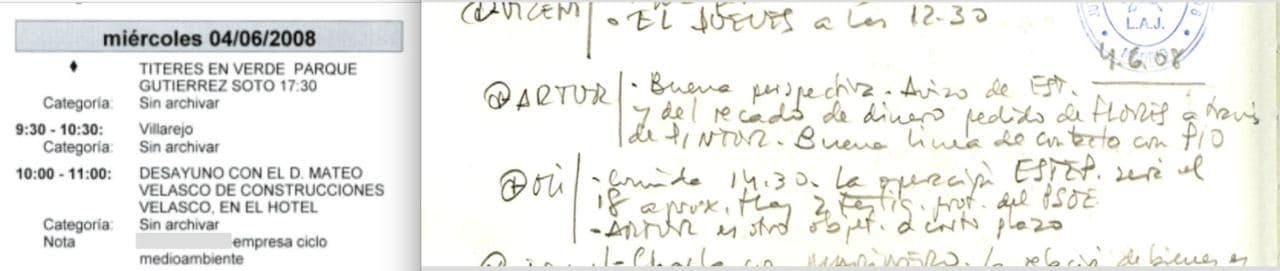 miércoles 04/06/2008
TITERES EN VERDE PARQUE
GUTIERREZ SOTO 17:30
Categoría: Sin archivar
9:30 - 10:30: Villarejo
Categoría: Sin archivar
10:00 - 11:00: DESAYUNO CON EL D. MATEO
VELASCO DE CONSTRUCCIONES
VELASCO, EN EL HOTEL
Categoría: Sin archivar
Nota empresa ciclo
medioambiente
· EL JUEVES a las 12.30
L.A.J.
4.6.08
ARTUR - Buena perspectiva. Aviso de EST.
y del recado de dinero pedido de FLORIS a través
de PINTOR. Buena linea de contacto con PIO
OLI - Comida 14.30. La operación ESTEP. será el
18 aprox. Hay 2 testig. prot. del PSOE
- ARTUR es otro objet. a corto plazo
- Charla con la relación de bienes es